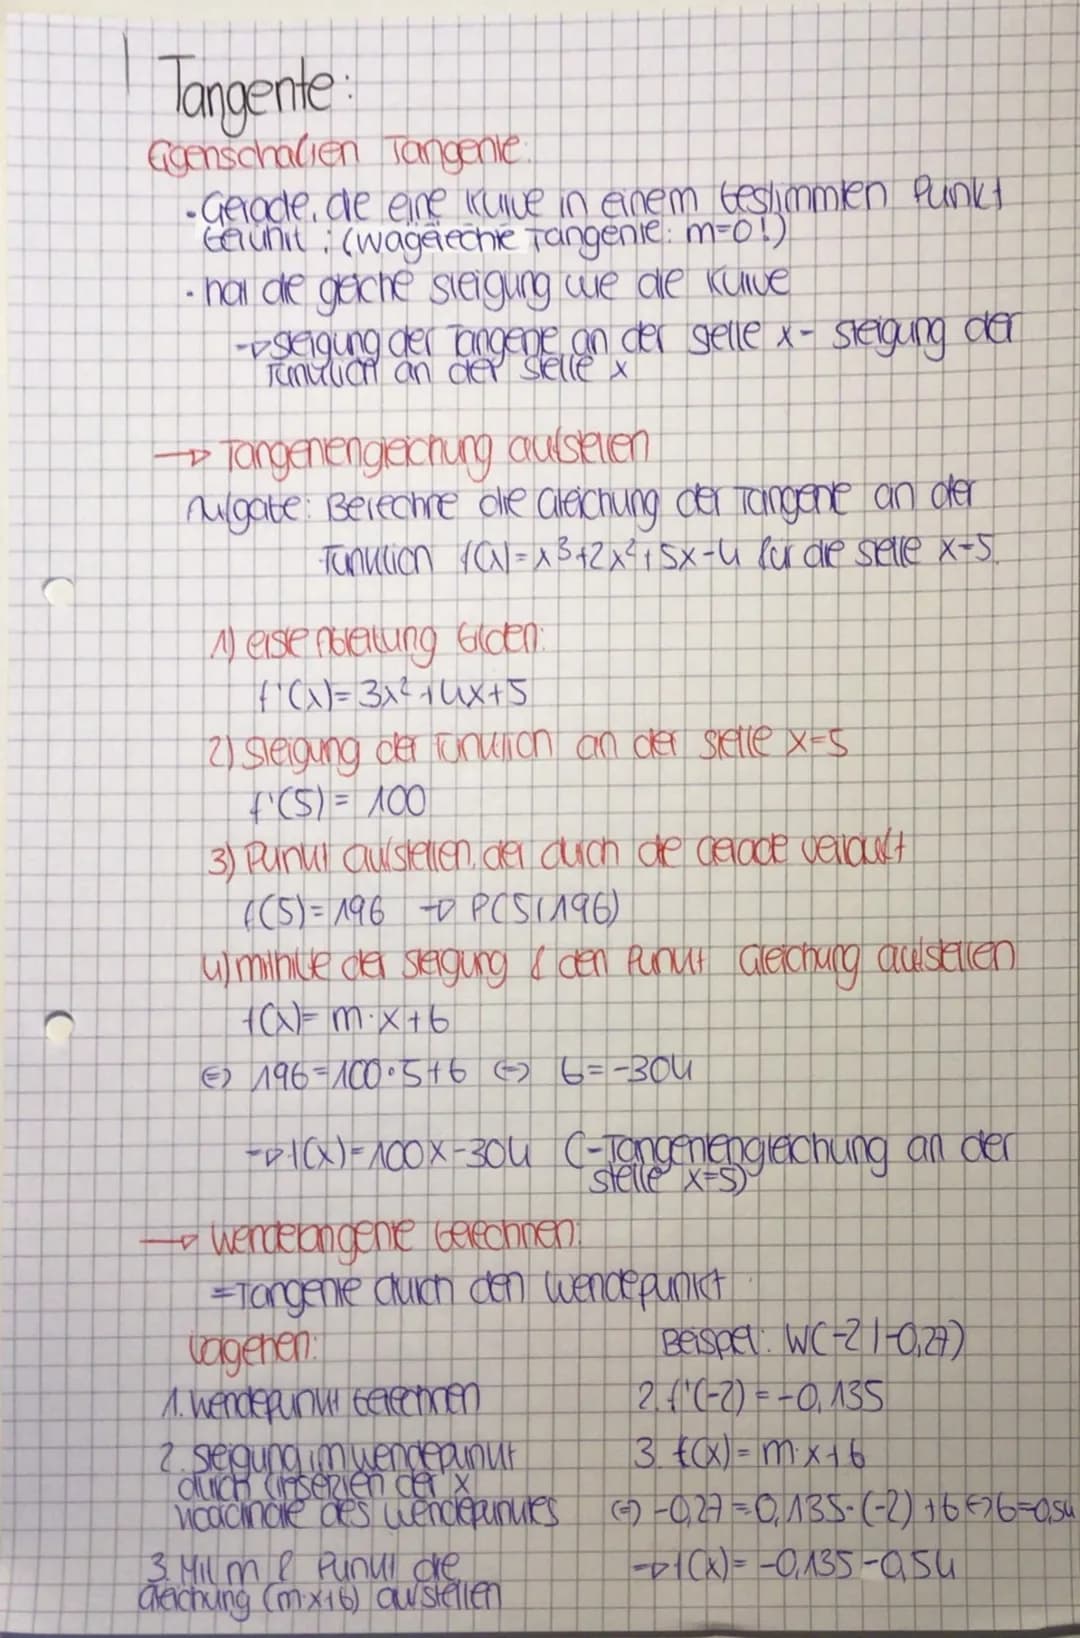 Tangente:
Eigenschaften Tangente:
• Gerade, die eine Kurve in einem bestimmten Punkt
berührt ; (wagerechte Tangente: m=0!)
• hat die gleiche Steigung wie die Kurve
→ Steigung der Tangente an der Stelle x - Steigung der
Funktion an der Stelle x
→ Tangentengleichung aufstellen
Aufgabe: Berechne die Gleichung der Tangente an der
Funktion f(x)=x³+2x²+5x-4 für die Stelle x=5.
1) erste Ableitung bilden:
f'(x)=3x²+4x+5
2) Steigung der Funktion an der Stelle x=5
f'(5)= 100
3) Punkt aufstellen, der durch die Gerade verläuft
f(5)=196 → P(5|196)
4) mithilfe der Steigung & den Punkt Gleichung aufstellen
t(x)= m·x+b
⇔ 196=100·5+b ⇔ b=-304
→ t(x)=100x-304 (-Tangentengleichung an der
Stelle x=5)
→ Wendetangente berechnen:
=Tangente durch den Wendepunkt
Vorgehen:
Beispiel: W(-2|-0,27)
1. Wendepunkt berechnen
2. f'(-2)=-0,135
2. Steigung im Wendepunkt
durch Einsetzen der x
Koordinate des Wendepunktes
3. t(x)=m·x+b
⇔ -0,27=0,135·(-2)+b ⇔ b=-0,54
3. Mit m & Punkt die
Gleichung (m·x+b) aufstellen
→ t(x)= -0,135-0,54